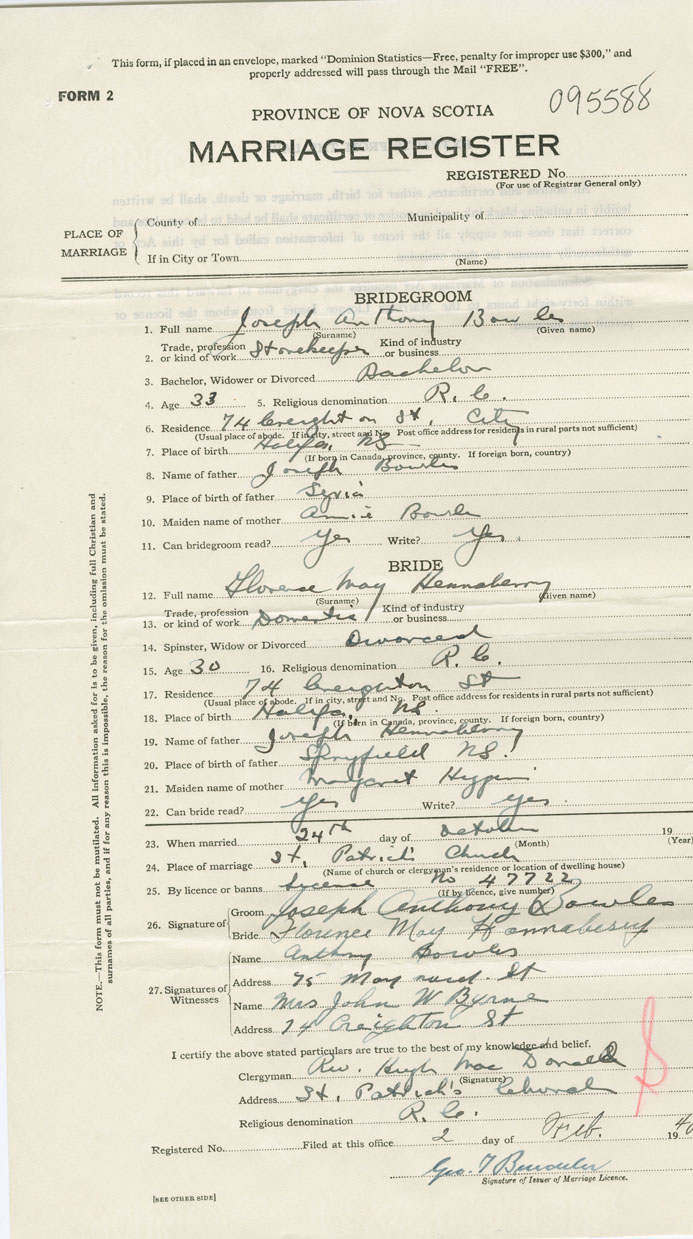 This form, if placed in an envelope, marked "Dominion Statistics—Free, penalty for improper use $300," and
properly addressed will pass through the Mail "FREE".
FORM 2
095588
PROVINCE OF NOVA SCOTIA
MARRIAGE REGISTER
REGISTERED No.
(For use of Registrar General only)
PLACE OF MARRIAGE
County of Municipality of
If in City or Town
(Name)
BRIDEGROOM
1. Full name Joseph Anthony Bowles
(Surname) (Given name)
2. Trade, profession or kind of work Storekeeper Kind of industry or business
3. Bachelor, Widower or Divorced Bachelor
4. Age 33 5. Religious denomination R. C.
6. Residence 74 Creighton St, City
(Usual place of abode. If in city, street and No. Post office address for residents in rural parts not sufficient)
7. Place of birth Halifax, NS
(If born in Canada, province, county. If foreign born, country)
8. Name of father Joseph Bowles
9. Place of birth of father Syria
10. Maiden name of mother Annie Bowles
11. Can bridegroom read? Yes Write? Yes.
BRIDE
12. Full name Florence May Hennaberry
(Surname) (Given name)
13. Trade, profession or kind of work Domestic Kind of industry or business
14. Spinster, Widow or Divorced Divorced
15. Age 30 16. Religious denomination R. C.
17. Residence 74 Creighton St
(Usual place of abode. If in city, street and No. Post office address for residents in rural parts not sufficient)
18. Place of birth Halifax, NS.
(If born in Canada, province, county. If foreign born, country)
19. Name of father Joseph Hennaberry
20. Place of birth of father Spryfield NS.
21. Maiden name of mother Margaret
22. Can bride read? Yes Write? Yes.
23. When married 24th day of October 19
(Month) (Year)
24. Place of marriage St. Patrick's Church
(Name of church or clergyman's residence or location of dwelling house)
25. By licence or banns License No 47722
(If by licence, give number)
26. Signature of
Groom Joseph Anthony Bowles
Bride Florence May Hannaberry
27. Signatures of Witnesses
Name Anthony Bowles
Address 75 Maynard St
Name Mrs John W Byrne
Address 74 Creighton St
I certify the above stated particulars are true to the best of my knowledge and belief.
Clergyman Rev. Hugh MacDonald
(Signature)
Address St. Patrick's Church
Religious denomination R. C.
Registered No. Filed at this office 2 day of Feb. 19 40
Signature of Issuer of Marriage Licence.
[SEE OTHER SIDE]
NOTE.—This form must not be mutilated. All information asked for is to be given, including full Christian and
surnames of all parties, and if for any reason this is impossible, the reason for the omission must be stated.